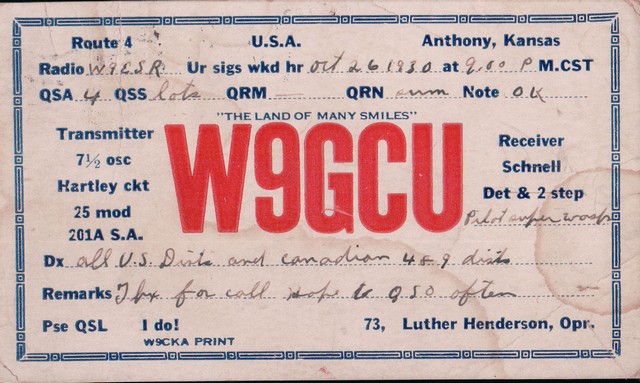 Route 4 U.S.A. Anthony, Kansas
Radio W9ESR Ur sigs wkd hr Oct 26 1930 at 9:00 P M.CST
QSA 4 QSS lots QRM — QRN sum Note OK
"THE LAND OF MANY SMILES"
Transmitter
7½ osc
Hartley ckt
25 mod
201A S.A.
W9GCU
Receiver
Schnell
Det & 2 step
Pilot super wasp
Dx all U.S. Dists and Canadian 4 & 9 dists
Remarks Tnx for call hope to QSO often
Pse QSL I do! 73, Luther Henderson, Opr.
W9CKA PRINT